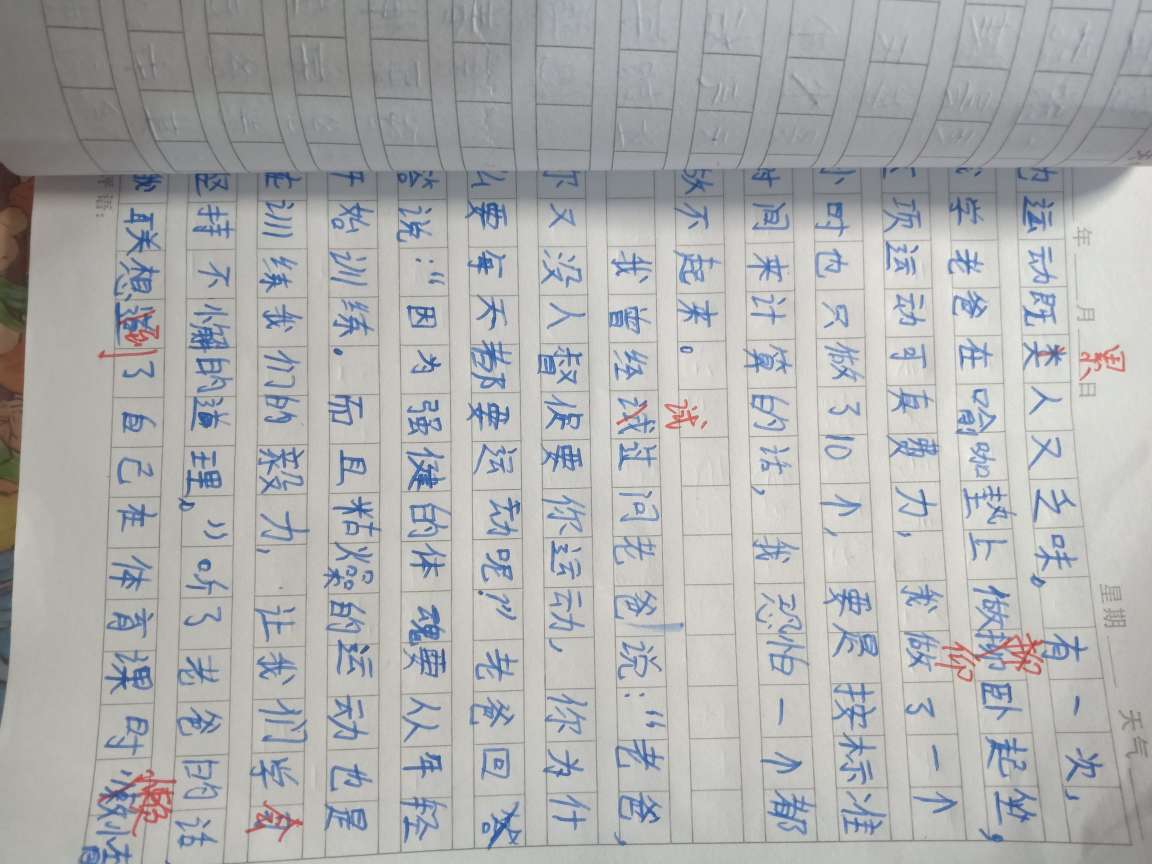 年 月 日 星期 天气
运动既类人又乏味。有一次，
累
学老爸在喻咖垫上做掤卧起坐，
仰
项运动可真费力，我做了一个
小时也只做了10个，要是按标准
时间来计算的话，我恐怕一个都
做不起来。
试
我曾经试过问老爸说：“老爸，
尔又没人督促要你运动，你为什
么要每天都要运动呢？”老爸回答
说：“因为强健的体魂要从年轻
开始训练。而且粘燥的运动也是
训练我们的毅力，让我们学
会
坚持不懈的道理。”听了老爸的话
联想
到
了自己在体育课时
懒
评语：